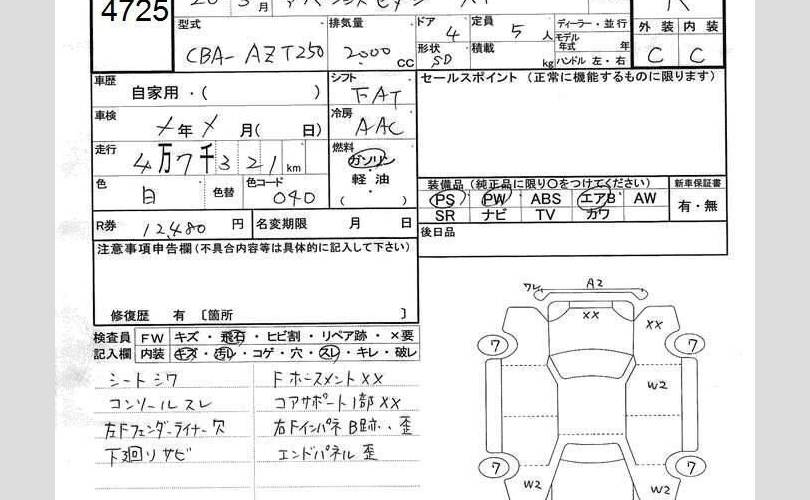 4725
20 3月
型式 排気量 ドア 定員 ディーラー・並行 外装 内装
CBA- AZT250 2000 CC 4 5 人 モデル年式 年
形状 SD 積載 kg ハンドル 左・右 C C
車歴 自家用・( ) シフト FAT セールスポイント (正常に機能するものに限ります)
車検 メ年メ月( 日) 冷房 AAC
走行 4万7千321km 燃料 ガソリン
軽油
( )
色 白 色替 色コード 040
装備品 (純正品に限り○をつけてください) 新車保証書
PS PW ABS エアB AW 有・無
SR ナビ TV カワ
R券 12,480 円 名変期限 月 日
後日品
注意事項申告欄(不具合内容等は具体的に記入して下さい)
修復歴 有 〔箇所 〕
検査員 FW キズ・飛石・ヒビ割・リペア跡・×要
記入欄 内装 キズ・汚レ・コゲ・穴・スレ・キレ・破レ
シートシワ Fホースメント××
コンソールスレ コアサポート1部××
左Fフェンダーライナー欠 右FインパネB跡、歪
下廻りサビ エンドパネル歪
ワレ A2
×× ××
7 7
W2
7 7
W2 W2